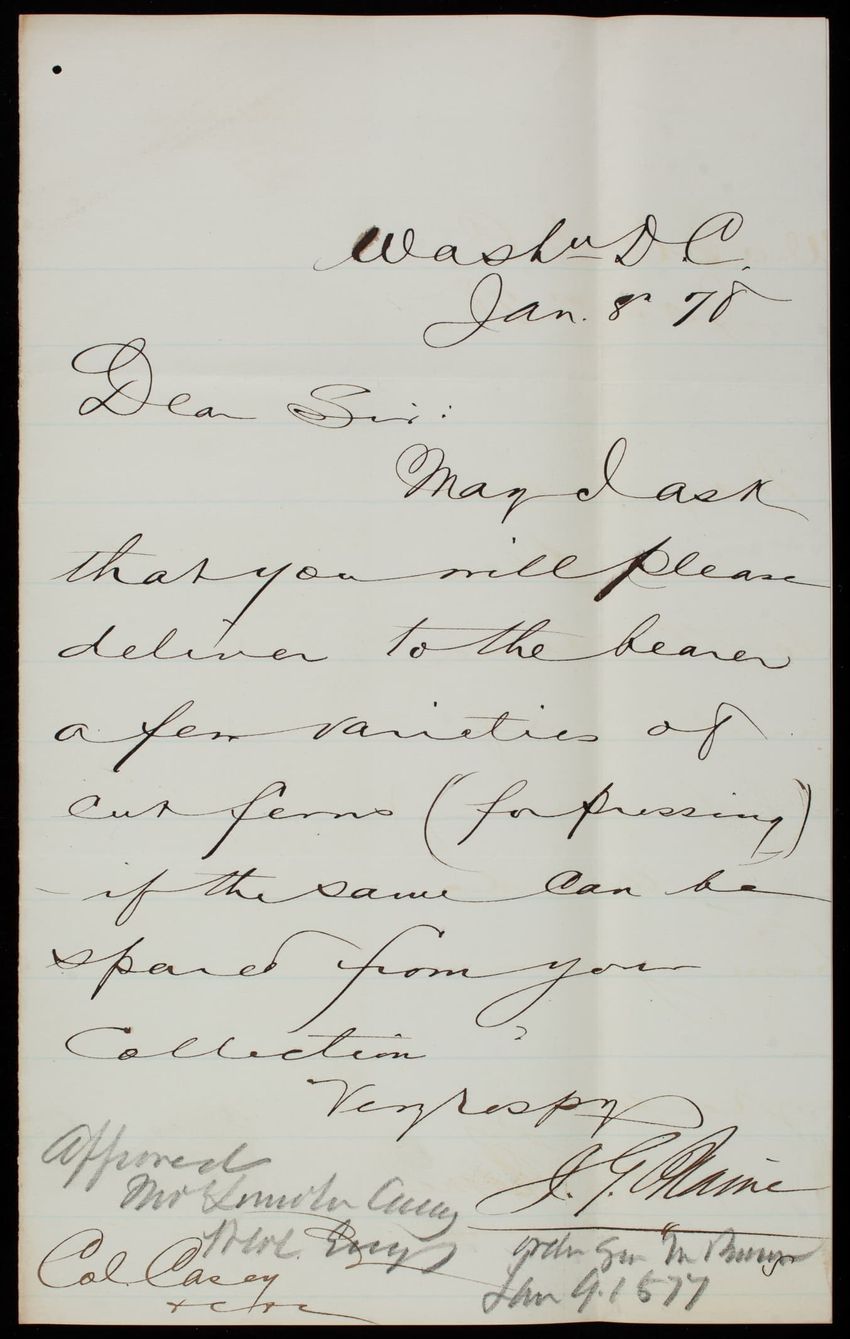 Washn D.C.
Jan. 8" 78
Dear Sir:
May I ask
that you will please
deliver to the bearer
a few varieties of
cut ferns (for pressing)
- if the same can be
spared from your
Collection ?
Very respy
J. G. Blaine
Approved
Thos Lincoln Casey
Col. Casey
&c &c
order Mr Brown
Jan 9. 1877